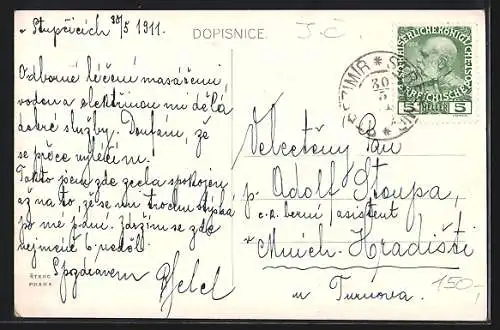 Stupčicích 30/5 1911.
DOPISNICE.
Odborné léčení masážemi,
vodou a elektřinou mu dělá
dobré služby. Doufám, že
se práce vyléčím.
Takto jsem zde zcela spokojen
až na to, že se mi trochu stýská
po mé paní. Zdržím se zde
nejméně 6 neděl.
S pozdravem
ŠTENC
PRAHA
KAISERLICHE KÖNIGLICHE
ÖSTERREICHISCHE POST
5 HELLER 5
30
5
Velectěný Pan
p. Adolf Stoupa,
c.k. berní asistent
v Mnich. Hradišti
u Turnova.
150,-